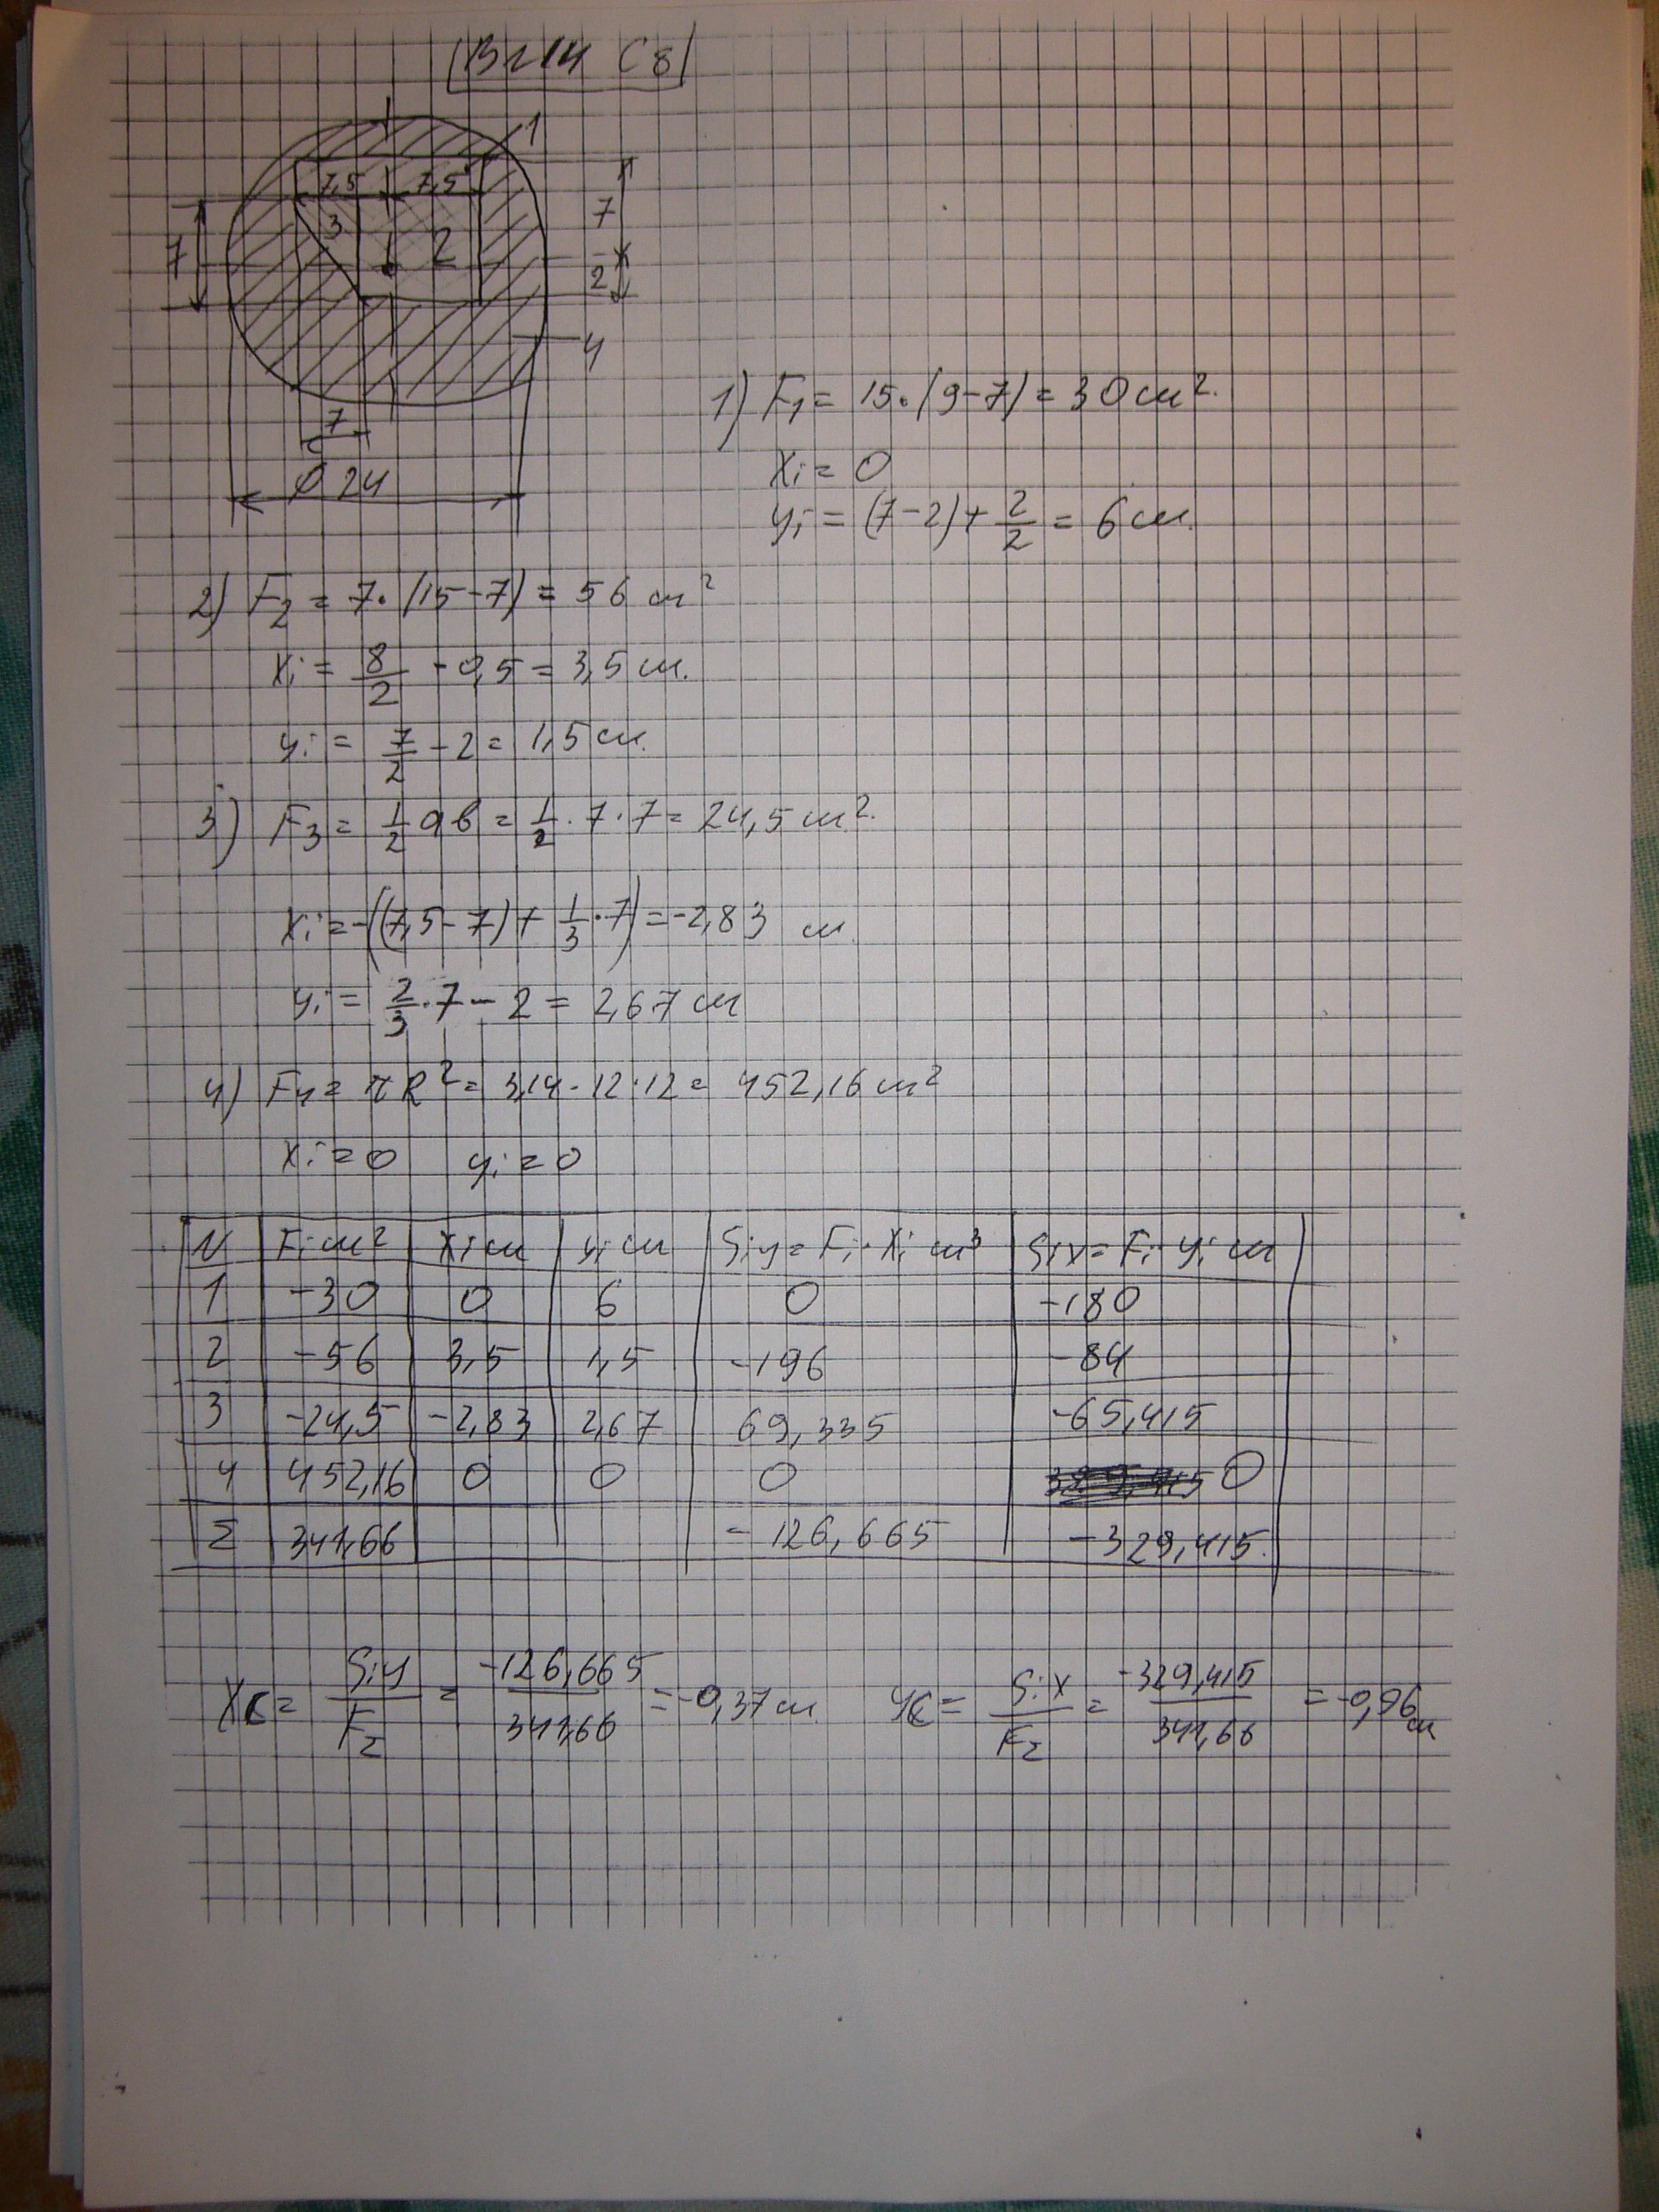 В214 С8
1
7,5 7,5
7
3
2
7
2
4
7
∅ 24
1) F₁ = 15·(9-7) = 30 см².
xᵢ = 0
yᵢ = (7-2)+ 2/2 = 6 см.
2) F₂ = 7·(15-7) = 56 см²
xᵢ = 8/2 - 0,5 = 3,5 см.
yᵢ = 7/2 - 2 = 1,5 см.
3) F₃ = 1/2 ав = 1/2·7·7 = 24,5 см².
xᵢ = -((7,5-7)+ 1/3·7) = -2,83 см.
yᵢ = 2/3·7 - 2 = 2,67 см
4) F₄ = πR² = 3,14·12·12 = 452,16 см²
xᵢ = 0 yᵢ = 0
N Fᵢ см² Xᵢ см yᵢ см Sᵢy = Fᵢ·Xᵢ см³ Sᵢx = Fᵢ·yᵢ см
1 -30 0 6 0 -180
2 -56 3,5 1,5 -196 -84
3 -24,5 -2,83 2,67 69,335 -65,415
4 452,16 0 0 0 0
Σ 341,66 -126,665 -329,415.
Xc = Sᵢy/F_Σ = -126,665/341,66 = -0,37 см. yc = Sᵢx/F_Σ = -329,415/341,66 = -0,96 см